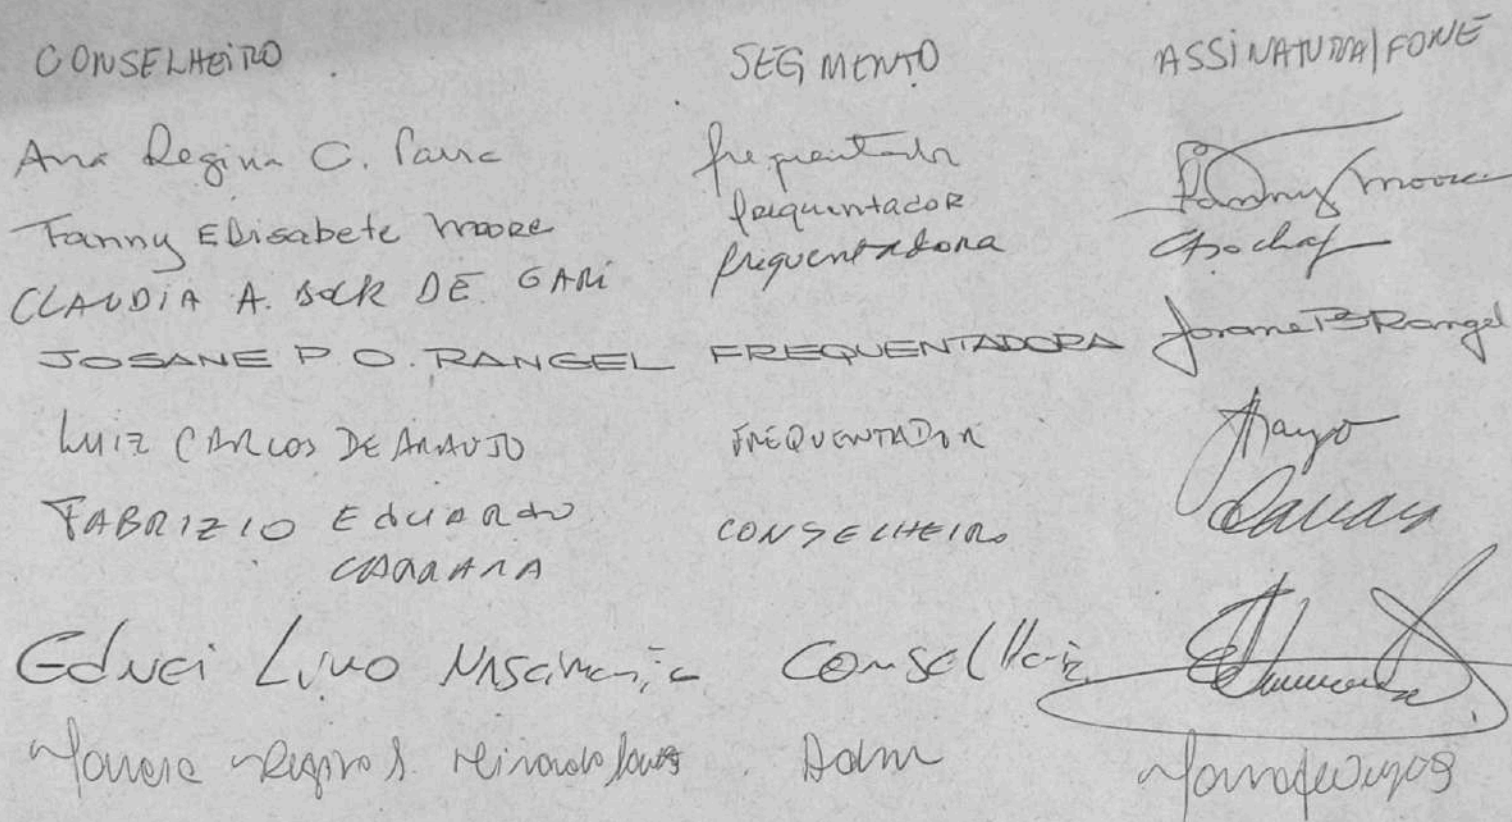 CONSELHEIRO SEGMENTO ASSINATURA/FONE
Ana Regina C. frequentador
Fanny Elisabete Moore frequentador Fanny Moore
CLAUDIA A. DE GARI frequentadora
JOSANE P. O. RANGEL FREQUENTADORA Josane Rangel
LUIZ CARLOS DE ARAUJO FREQUENTADOR
FABRIZIO EDUARDO CONSELHEIRO
CARRARA
Ednei Lino Conselheiro
Regina S. Adm